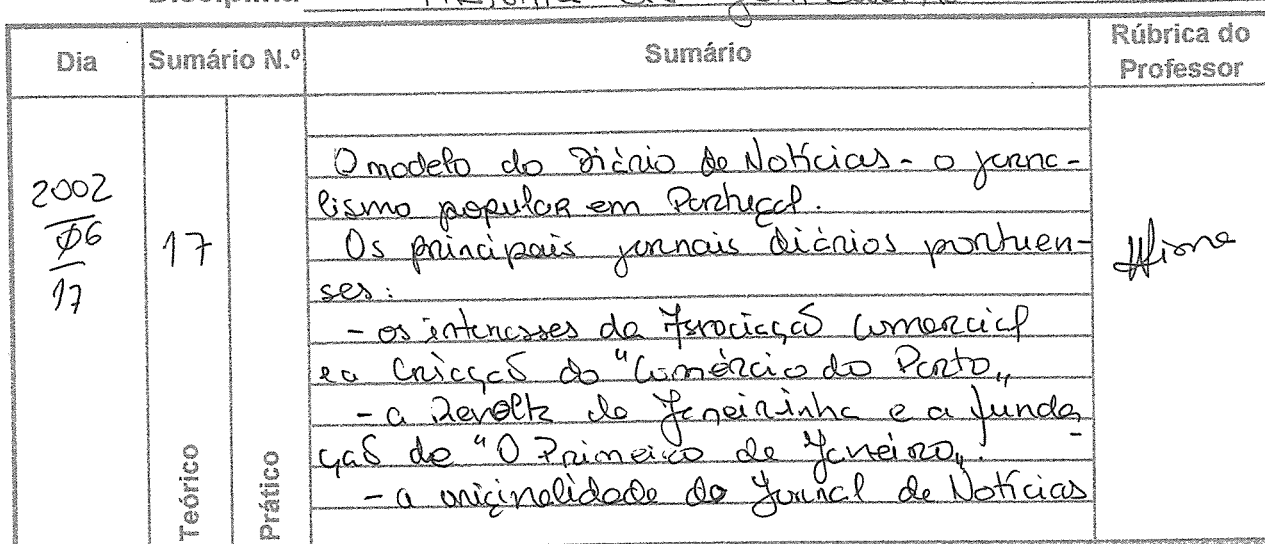 Dia
Sumário N.º
Sumário
Rúbrica do
Professor
2002
06
17
17
O modelo do Diário de Notícias - o jorna-
lismo popular em Portugal.
Os principais jornais diários portuen-
ses:
- os interesses da Associação Comercial
e a Criação do "Comércio do Porto"
- a Revolta de Janeirinha e a funda-
ção de "O Primeiro de Janeiro".
- a originalidade do Jornal de Notícias
Teórico
Prático